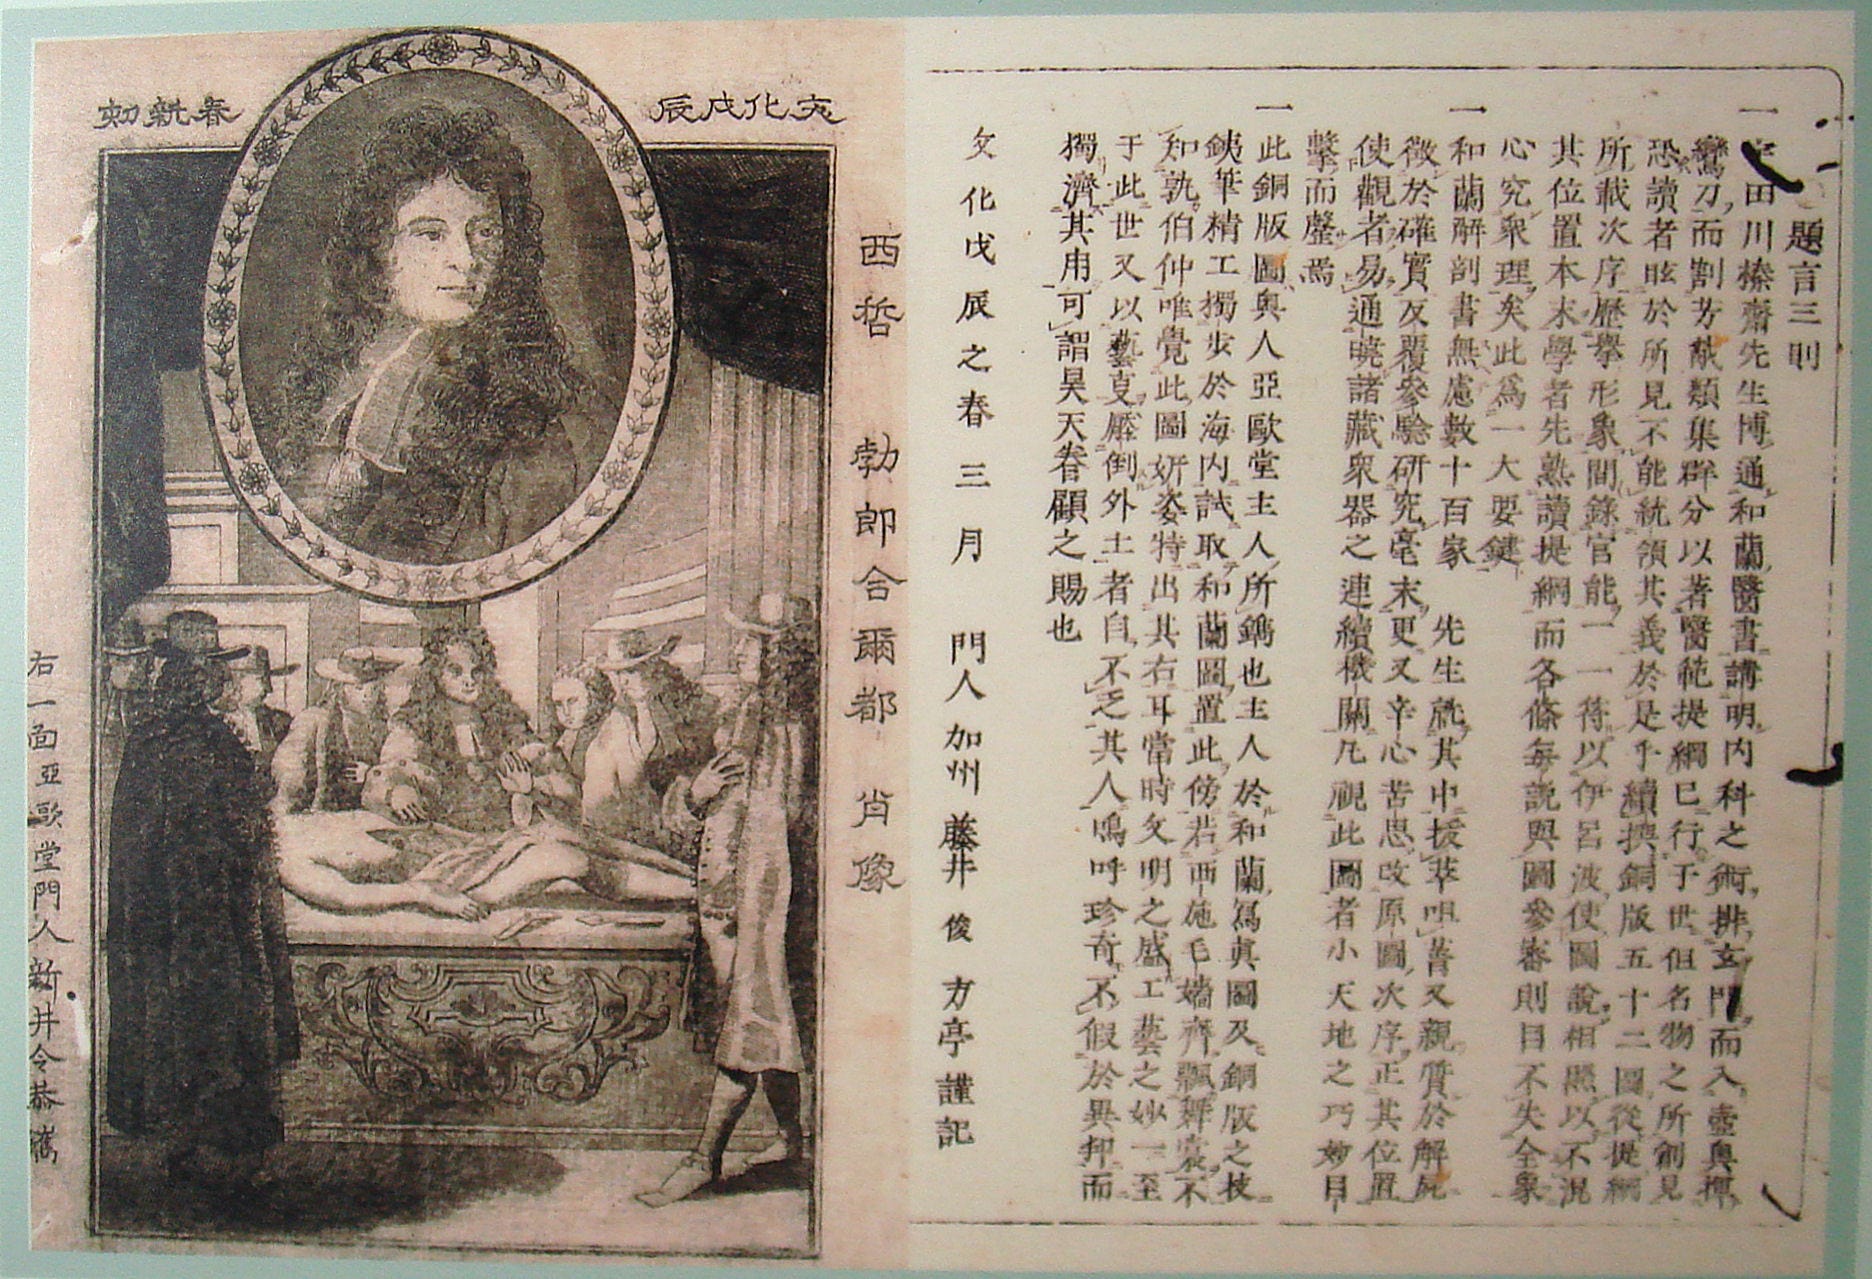 題言三則
一 田川榛齋先生博通和蘭醫書講明内科之術排玄門而入壺奥揮
鸞刀而割芳胾類集群分以著醫範提綱已行于世但名物之所創見
恐讀者眩於所見不能統領其義於是乎續撰銅版五十二圖從提綱
所載次序歷擧形象間錄官能一一符以伊呂波使圖說相照以不混
其位置本末學者先熟讀提綱而各條每説與圖參審則目不失全象
心究衆理矣此爲一大要鍵
一 和蘭解剖書無慮數十百家 先生就其中拔萃咀菁又親質於解屍
徵於確實反覆參驗研究毫末更又辛心苦思改原圖次序正其位置
使觀者易通曉諸藏衆器之連續機關凡覗此圖者小天地之巧妙目
擊而罄焉
一 此銅版圖與人亞歐堂主人所鐫也主人於和蘭寫眞圖及銅版之技
銕筆精工獨步於海内試取和蘭圖置此傍若西施毛嬙齊飄舞裳不
知孰伯仲唯覺此圖妍姿特出其右耳當時文明之盛工藝之妙一至
于此世又以藝克壓倒外土者自不乏其人嗚呼珍奇不假於異邦而
獨濟其用可謂昊天眷顧之賜也
文化戊辰之春三月 門人加州藤井 俊 方亭謹記
西哲 勃郎合爾都 肖像
文化戊辰
春新刻
右一面亞歐堂門人新井令恭鐫